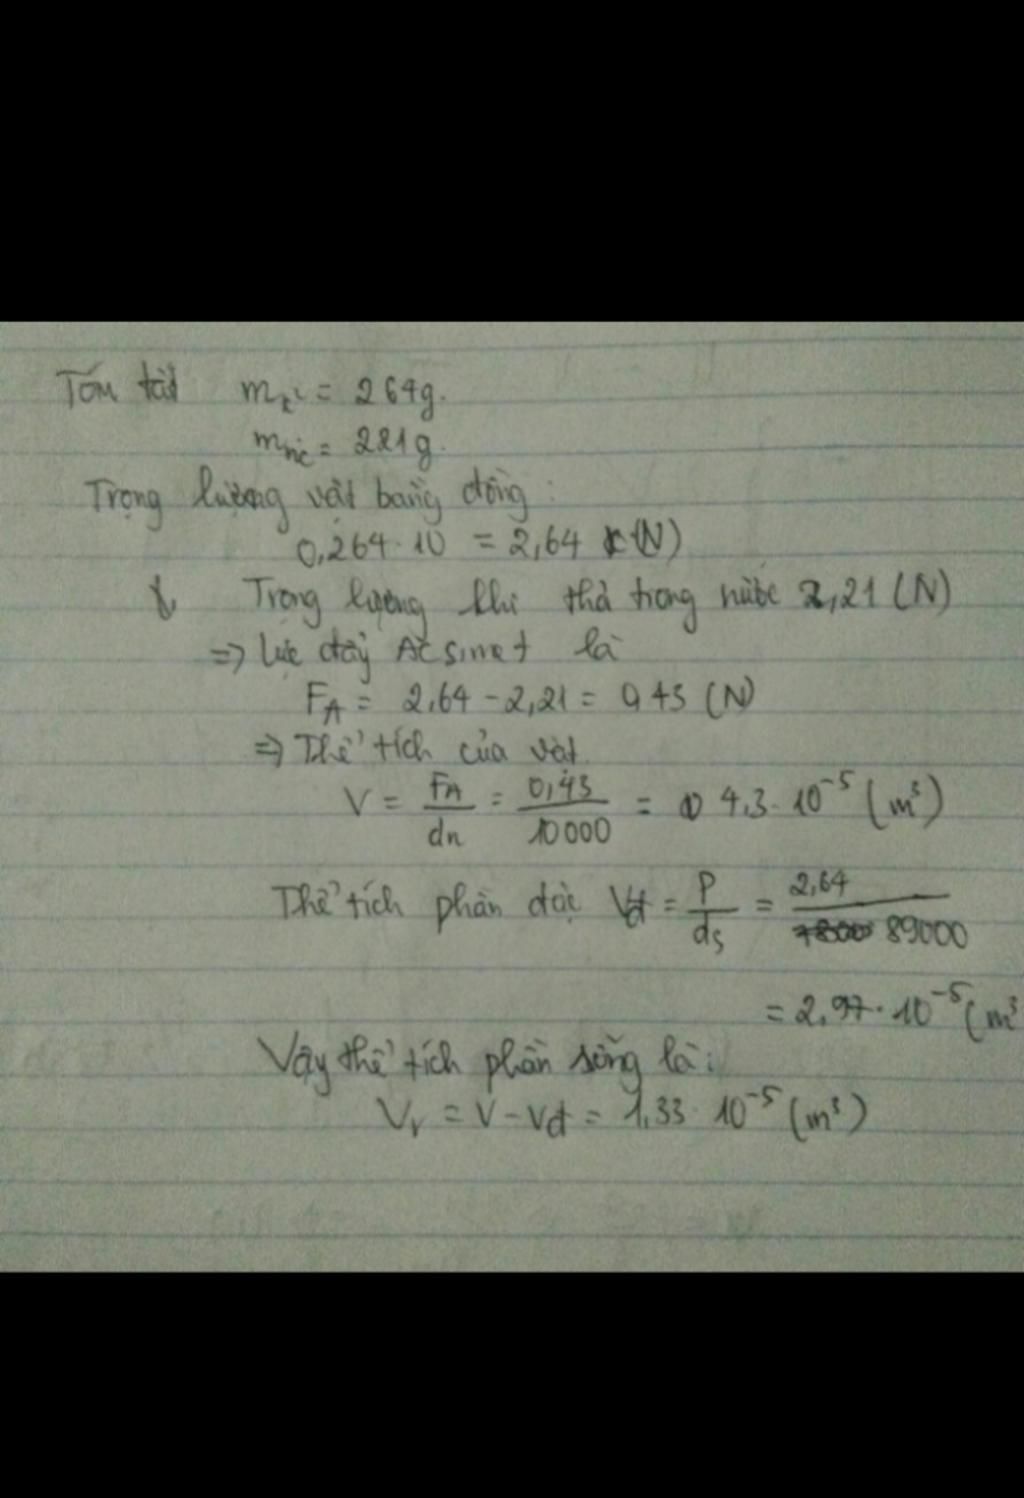 Tóm tắt m_k² = 264g.
m_nc = 221g.
Trọng lượng vật bằng đồng :
0,264 . 10 = 2,64 (N)
Trọng lượng khi thả trong nước 2,21 (N)
=> Lực đẩy Acsimet là
F_A = 2,64 - 2,21 = 0,43 (N)
=> Thể tích của vật.
V = F_A / d_n = 0,43 / 10000 = 4,3 . 10⁻⁵ (m³)
Thể tích phần đặc V_đ = P / d_s = 2,64 / 89000
= 2,97 . 10⁻⁵ (m³
Vậy thể tích phần rỗng là :
V_r = V - V_đ = 1,33 . 10⁻⁵ (m³)